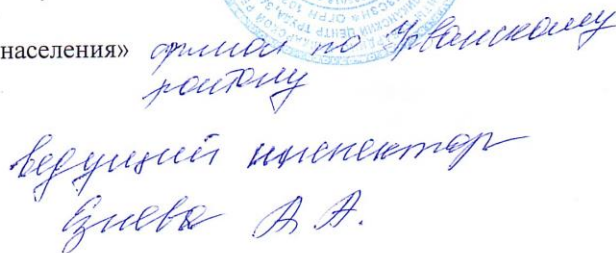 населения» филиал по Урванскому
району
ведущий инспектор
А. А.